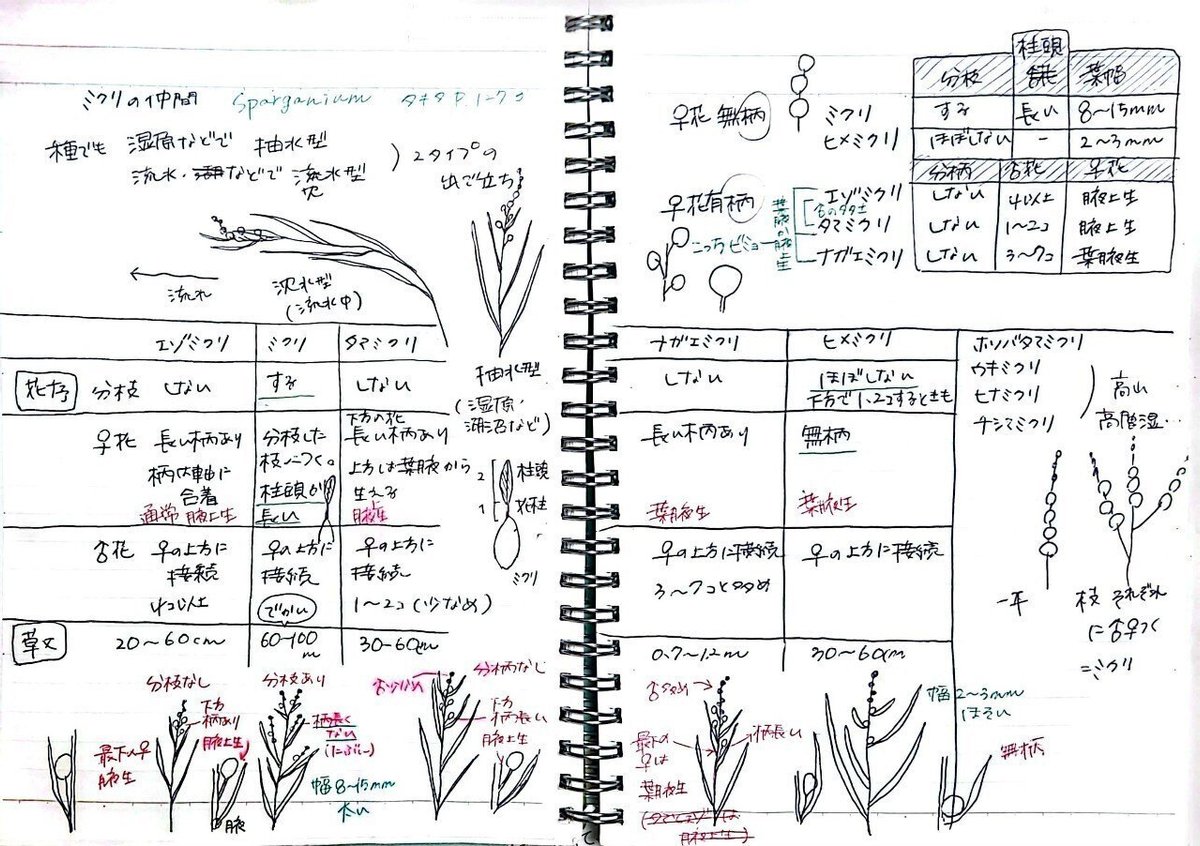 ミクリの仲間 Sparganium
種でも 湿原などで 抽水型
流水・湖などで 流水型
沈
2タイプの
出で立ち
流れ
沈水型
(流水中)
抽水型
(湿原・
湖沼など)
エゾミクリ ミクリ タマミクリ
花序 分枝 しない する しない
♀花 長い柄あり
柄は軸に
合着
通常 腋上生
分枝した
枝につく。
柱頭が
長い
下方の花
長い柄あり
上方は葉腋から
生える
腋生
2 柱頭
1 花柱
ミクリ
♂花 ♀の上方に
接続
4コ以上
♀の上方に
接続
でかい
♀の上方に
接続
1〜2コ(少なめ)
草丈 20〜60cm 60-100 m 30-60cm
分枝なし
下方
柄あり
腋上生
最下の♀
腋生
腋
分枝あり
柄長く
ない
幅8〜15mm
太い
♂少ない
分柄なし
下方
柄長い
腋上生
♀花 無柄 ミクリ
ヒメミクリ
♀花有柄 エゾミクリ
タマミクリ
ナガエミクリ
♂の多少
葉腋か腋上生
こっちビミョー
分枝 柱頭 葉幅
する 長い 8〜15mm
ほぼしない - 2〜3mm
分柄 ♂花 ♀花
しない 4以上 腋上生
しない 1〜2コ 腋上生
しない 3〜7コ 葉腋生
ナガエミクリ ヒメミクリ
しない
ほぼしない
下方で1、2コするときも
長い柄あり
葉腋生
無柄
葉腋生
♀の上方に接続
3〜7コと多め
♀の上方に接続
0.7〜1.2m 30〜60cm
ホソバタマミクリ
ウキミクリ
ヒナミクリ
チシマミクリ
高山
高層湿…
一本
枝 それぞれ
に♂♀つく
=ミクリ
♂多め
最下の
♀は
葉腋生
柄長い
幅2〜3mm
ほそい
無柄